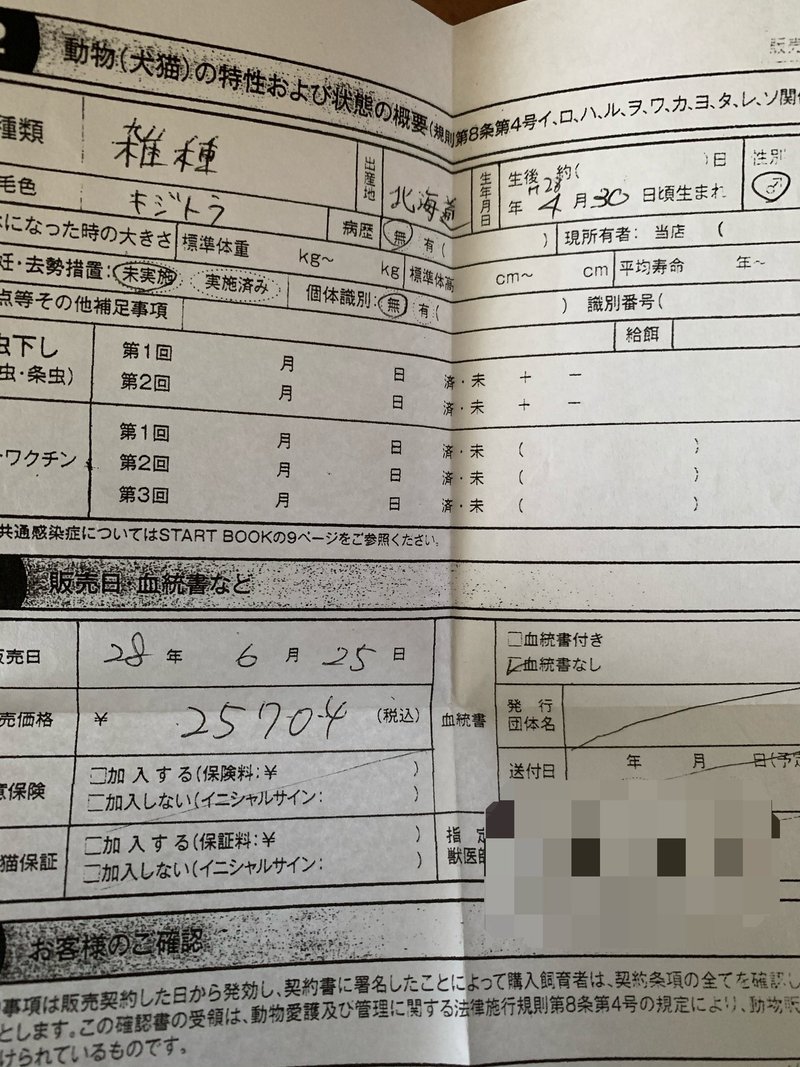 2 動物(犬猫)の特性および状態の概要(規則第8条第4号イ、ロ、ハ、ル、ヲ、ワ、カ、ヨ、タ、レ、ソ関係
販売
種類 雑種 出産地 北海道 生年月日 生後 約( )日 性別 ♂
H28年 4月30日頃生まれ
毛色 キジトラ 病歴 無 有( ) 現所有者: 当店 (
になった時の大きさ 標準体重 kg~ kg 標準体高 cm~ cm 平均寿命 年~
妊・去勢措置: 未実施 実施済み 個体識別: 無 有( ) 識別番号(
点等その他補足事項 給餌
虫下し 第1回 月 日 済・未 + −
虫・条虫) 第2回 月 日 済・未 + −
ワクチン 第1回 月 日 済・未 ( )
第2回 月 日 済・未 ( )
第3回 月 日 済・未 ( )
共通感染症についてはSTART BOOKの9ページをご参照ください。
販売日・血統書など
販売日 28年 6月 25日 血統書 □血統書付き
☑血統書なし
売価格 ¥ 25704 (税込) 発行団体名
保険 □加入する(保険料:¥ ) 送付日 年 月 日(予定
□加入しない(イニシャルサイン: )
猫保証 □加入する(保証料:¥ ) 指定獣医師
□加入しない(イニシャルサイン: )
お客様のご確認
事項は販売契約した日から発効し、契約書に署名したことによって購入飼育者は、契約条項の全てを確認し
とします。この確認書の受領は、動物愛護及び管理に関する法律施行規則第8条第4号の規定により、動物販
けられているものです。